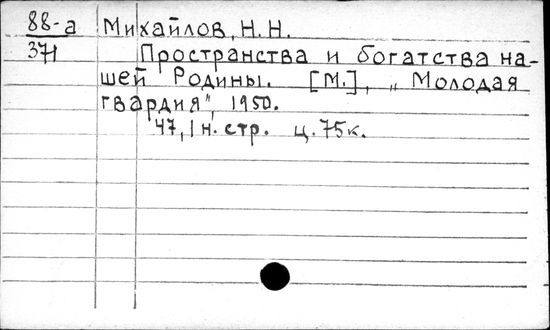 88-а Михайлов, Н.Н.
371 Пространства и богатства на-
шей Родины. [М.], „Молодая
гвардия", 1950.
47, 1 н. стр. ц. 75к.